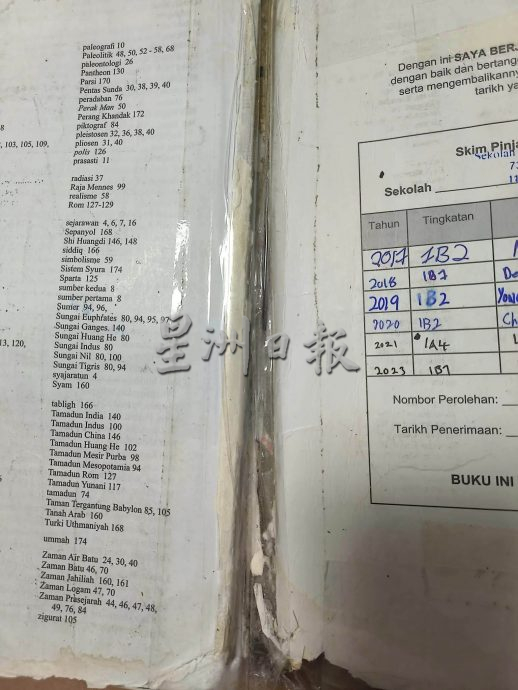 paleografi 10
Paleolitik 48, 50, 52 - 58, 68
paleontologi 26
Pantheon 130
Parsi 170
Pentas Sunda 30, 38, 39, 40
peradaban 76
Perak Man 50
Perang Khandak 172
piktograf 84
pleistosen 32, 36, 38, 40
pliosen 31, 40
polis 126
prasasti 11
8
103, 105, 109,
radiasi 37
Raja Mennes 99
realisme 58
Rom 127-129
sejarawan 4, 6, 7, 16
Sepanyol 168
Shi Huangdi 146, 148
siddiq 166
simbolisme 59
Sistem Syura 174
Sparta 125
sumber kedua 8
sumber pertama 8
Sumer 94, 96,
Sungai Euphfates 80, 94, 95, 97
Sungai Ganges. 140
Sungai Huang He 80
Sungai Indus 80
Sungai Nil 80, 100
Sungai Tigris 80, 94
syajaratun 4
Syam 160
13, 120,
tabligh 166
Tamadun India 140
Tamadun Indus 100
Tamadun China 146
Tamadun Huang He 102
Tamadun Mesir Purba 98
Tamadun Mesopotamia 94
Tamadun Rom 127
Tamadun Yunani 117
tamadun 74
Taman Tergantung Babylon 85, 105
Tanah Arab 160
Turki Uthmaniyah 168
ummah 174
Zaman Air Batu 24, 30, 40
Zaman Batu 46, 70
Zaman Jahiliah 160, 161
Zaman Logam 47, 70
Zaman Prasejarah 44, 46, 47, 48,
49, 76, 84
zigurat 105
星洲日報
Dengan ini SAYA BER
dengan baik dan bertang
serta mengembalikanny
tarikh ya
Skim Pinj
Sekolah
Sekolah
Tahun Tingkatan
2017 1B2
2018 1B1 De
2019 1B2 Yow
2020 1B2 Ch
2021 1A4
2023 1B1
Nombor Perolehan:
Tarikh Penerimaan:
BUKU INI